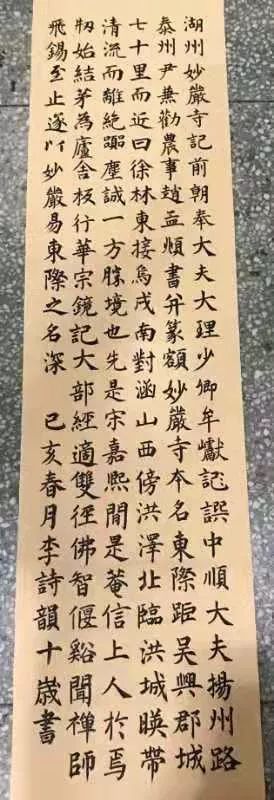 湖州妙嚴寺記前朝奉大夫大理少卿牟巘記譔中順大夫揚州路
泰州尹兼勸農事趙孟順書并篆額妙嚴寺本名東際距吳興郡城
七十里而近曰徐林東接烏戍南對涵山西傍洪澤北臨洪城暎帶
清流而離絕塵誠一方勝境也先是宋嘉熙間是菴信上人於焉
刱始結茅為廬舍板行華宗鏡記大部經適雙徑佛智偃谿聞禪師
飛錫至止遂以妙嚴易東際之名深 己亥春月李詩韻十歲書